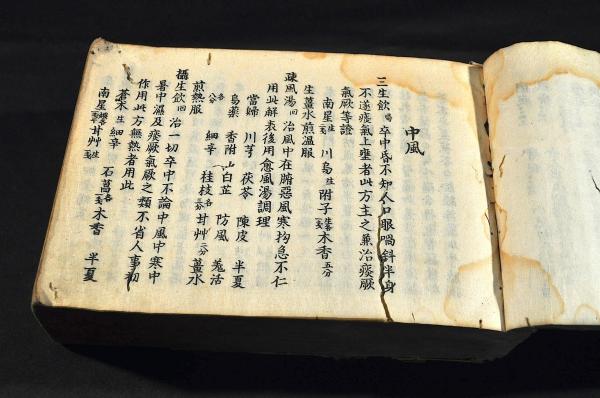 中風
三生飲 卒中昏不知人口眼喎斜半身
不遂痰氣上壅者此方主之兼治痰厥
氣厥等證
南星生 川烏生 附子 木香五分
生薑水煎溫服
疎風湯 治風中在腑惡風寒拘急不仁
用此解表後用愈風湯調理
當歸 川芎 茯苓 陳皮 半夏
烏藥 香附 白芷 防風 羌活
各八分 細辛 桂枝各三分 甘艸二分 薑水
煎熱服
攝生飲 治一切卒中不論中風中寒中
暑中濕及痰厥氣厥之類不省人事初
作用此方無熱者用此
蒼朮生 細辛
南星 甘艸生 石菖 木香 半夏